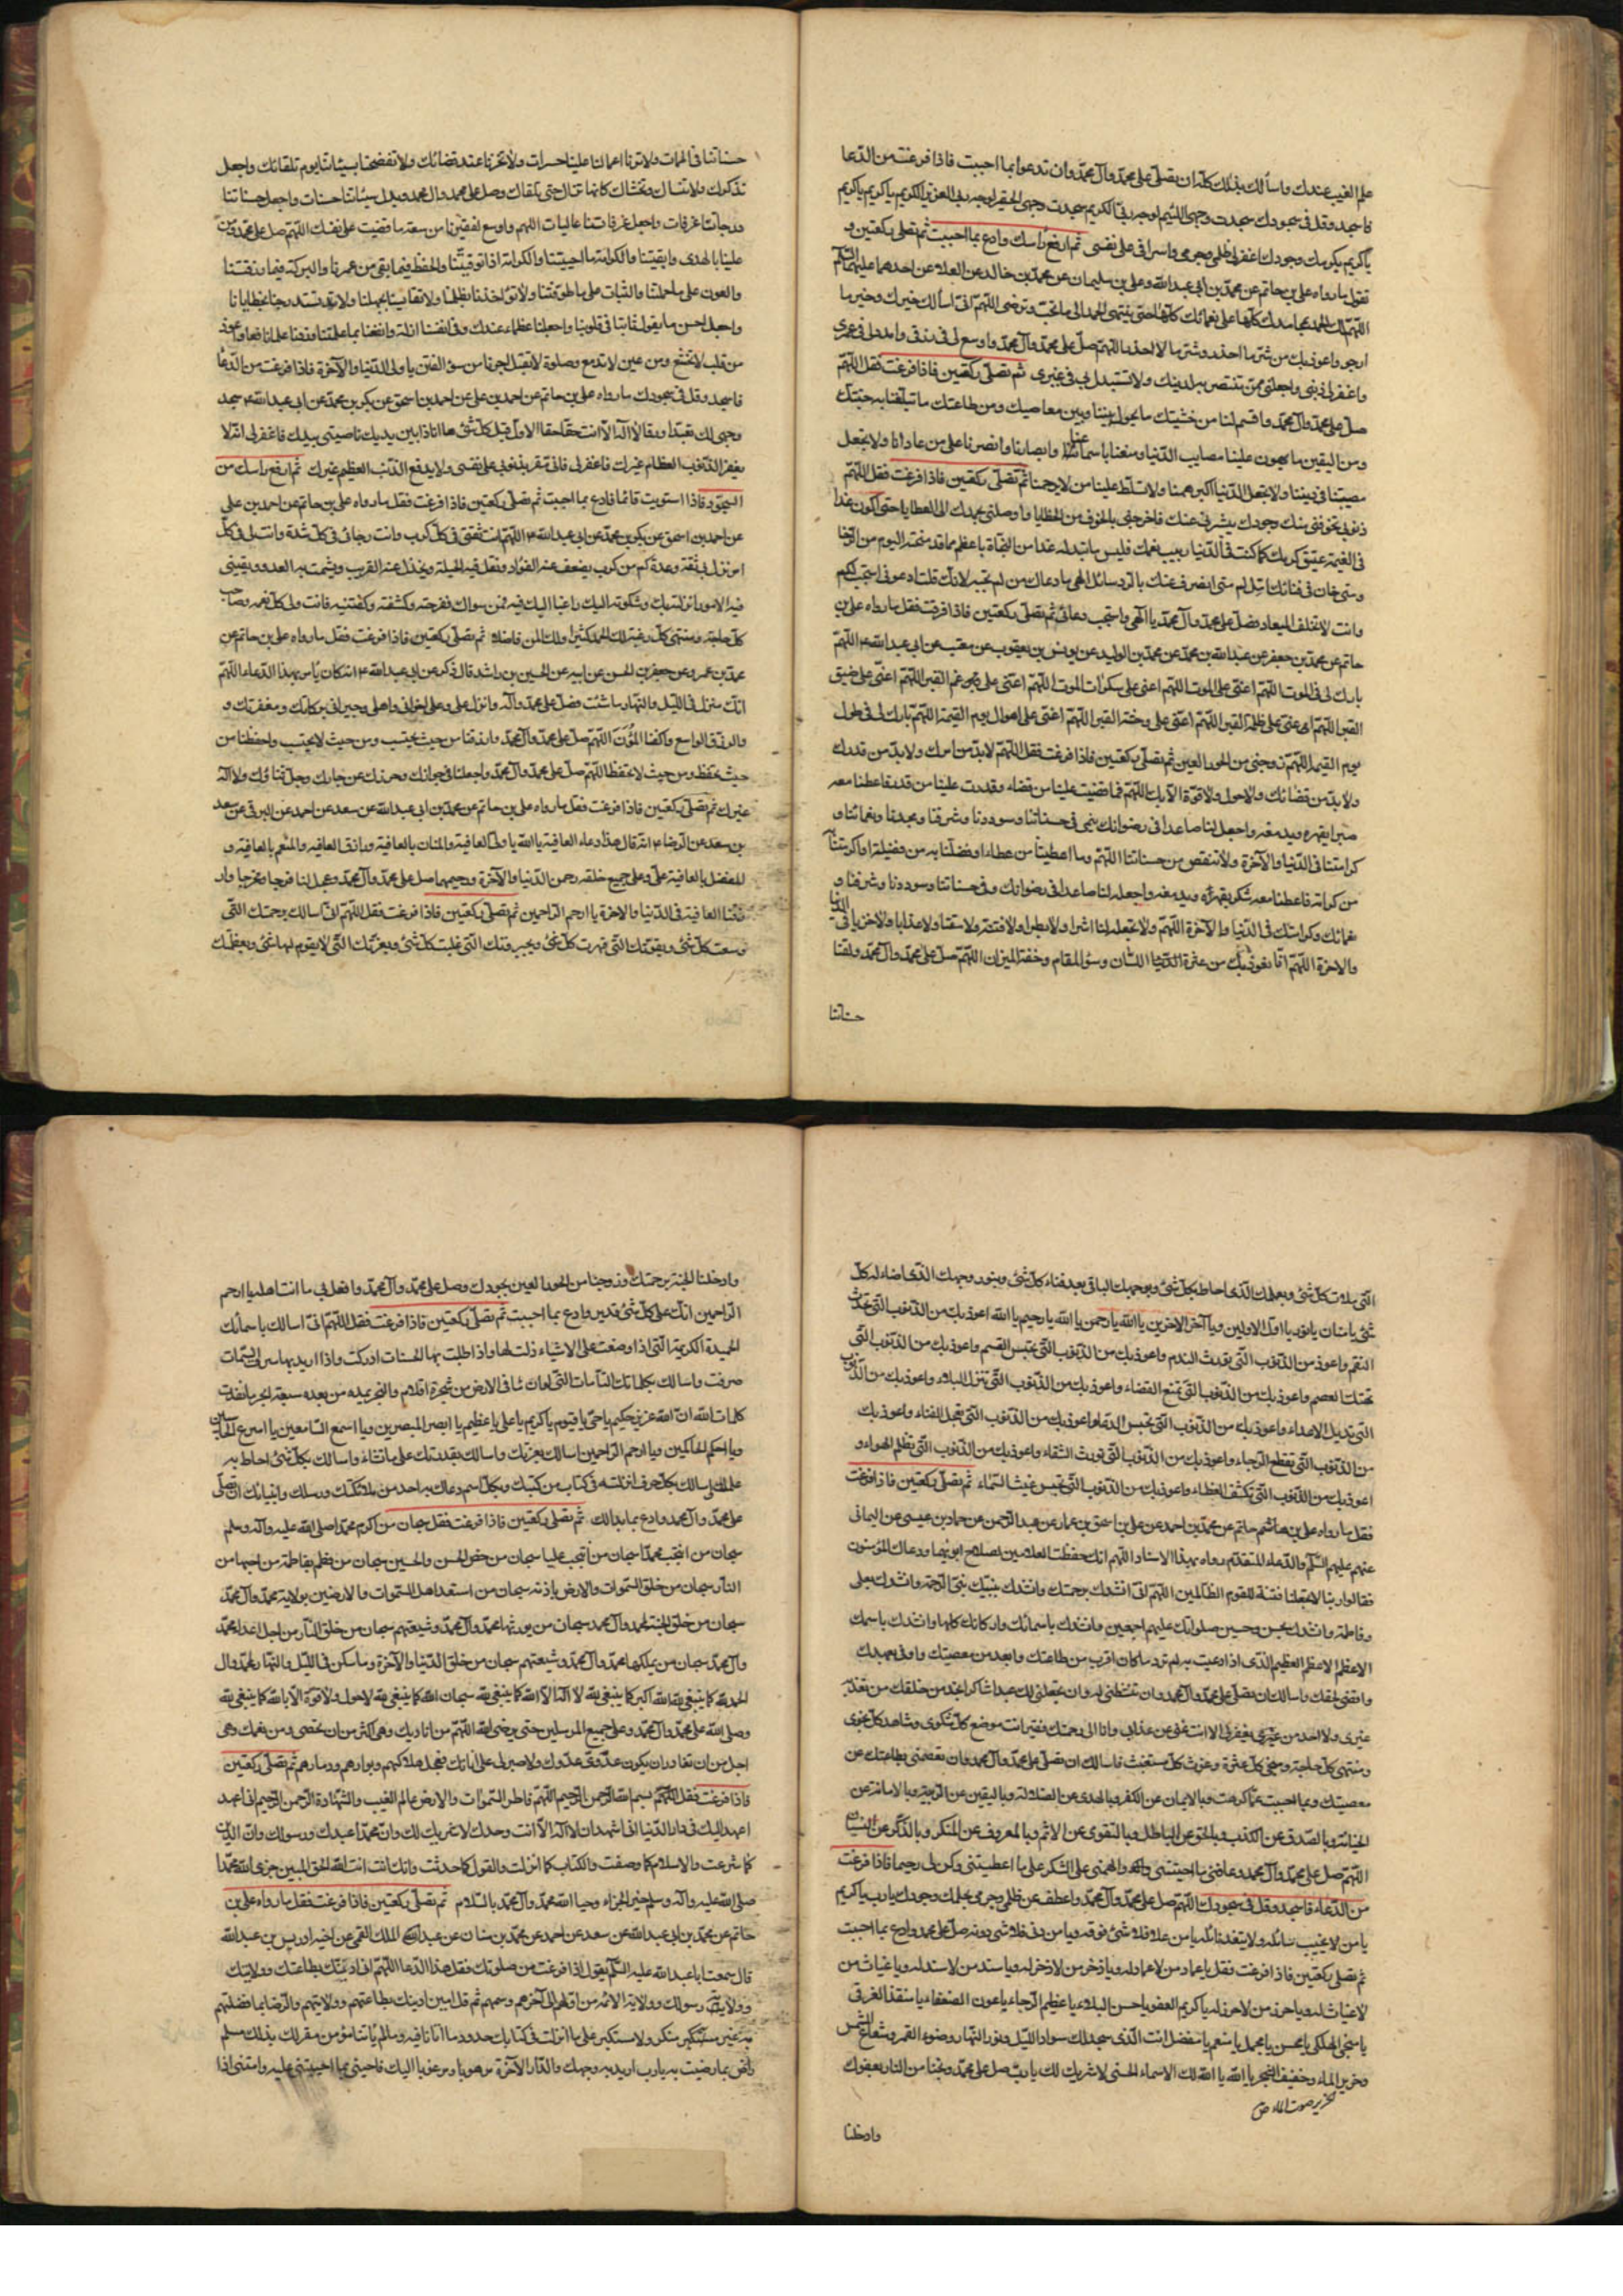 علم الغيب عندك واسألك بذلك كله ان تصلى على محمد وآل محمد وان تدعو بما احببت فاذا فرغت من الدعا
فاسجد وقل فى سجودك سجدت وجهى اللئيم لوجه ربى الكريم سجدت وجهى الحقير لوجه ربى العزيز الكريم يا كريم يا كريم
يا كريم بكرمك وجودك اغفر لى ظلمى وجرمى واسرافى على نفسى ثم ارفع رأسك وادع بما احببت ثم تصلى ركعتين و
تقول ما رواه على بن حاتم عن محمد بن أبى عبد الله وعلى بن سليمان عن محمد بن خالد عن العلا عن احدهما عليهما السلم
اللهم لك الحمد بمحامدك كلها على نعمائك كلها حتى ينتهى الحمد الى ما تحب وترضى اللهم انى اسألك خيرك وخير ما
ارجو واعوذ بك من شر ما احذر وشر ما لا احذر اللهم صل على محمد وآل محمد واوسع لى فى رزقى وامدد لى فى عمرى
واغفر لى ذنبى واجعلنى ممن تنتصر به لدينك ولا تستبدل بى غيرى ثم تصلى ركعتين فاذا فرغت فقل اللهم
صل على محمد وآل محمد واقسم لنا من خشيتك ما يحول بيننا وبين معاصيك ومن طاعتك ما تبلغنا به جنتك
ومن اليقين ما يهون علينا مصايب الدنيا ومتعنا باسماعنا وابصارنا وانصرنا على من عادانا ولا تجعل
مصيبتنا فى ديننا ولا تجعل الدنيا اكبر همنا ولا تسلط علينا من لا يرحمنا ثم تصلى ركعتين فاذا فرغت فقل اللهم
ذنوبى تخوفنى منك وجودك يبشرنى عنك فاخرجنى بالخوف من الخطايا واوصلنى بجودك الى العطايا حتى اكون غدا
فى القيمة عتيق كرمك كما كنت فى الدنيا ربيب نعمك فليس ما تبذله غدا من النجاة باعظم مما قد منحته اليوم من الرجا
ومتى خاب فى فنائك امل ام متى انصرف عنك بالرد سائل الهى ما دعاك من لم تجبه لانك قلت ادعونى استجب لكم
وانت لا تخلف الميعاد فصل على محمد وآل محمد يا الهى واستجب دعائى ثم تصلى ركعتين فاذا فرغت فقل ما رواه على بن
حاتم عن محمد بن جعفر عن عبد الله بن محمد عن محمد بن الوليد عن يونس بن يعقوب عن معتب عن ابى عبد الله ع اللهم
بارك لى فى الموت اللهم اعنى على الموت اللهم اعنى على سكرات الموت اللهم اعنى على غم القبر اللهم اعنى على ضيق
القبر اللهم اعنى على ظلمة القبر اللهم اعنى على وحشة القبر اللهم اعنى على اهوال يوم القيمة اللهم بارك لى فى طول
يوم القيمة اللهم زوجنى من الحور العين ثم تصلى ركعتين فاذا فرغت فقل اللهم لابد من امرك ولابد من قدرك
ولابد من قضائك ولا حول ولا قوة الا بك اللهم فما قضيت علينا من قضاء وقدرت علينا من قدر فاعطنا معه
صبرا يقهره ويدمغه واجعله لنا صاعدا فى رضوانك ينمى فى حسناتنا وسوددنا وشرفنا ومجدنا ونعمائنا و
كرامتنا فى الدنيا والآخرة ولا تنقص من حسناتنا اللهم وما اعطيتنا من عطاء او فضلتنا به من فضيلة او اكرمتنا به
من كرامة فاعطنا معه شكرا يقهره ويدمغه واجعله لنا صاعدا فى رضوانك وفى حسناتنا وسوددنا وشرفنا و
نعمائك وكرامتك فى الدنيا والآخرة اللهم ولا تجعله لنا اشرا ولا بطرا ولا فتنة ولا مقتا ولا عذابا ولا خزيا فى الدنيا
والاخرة اللهم انا نعوذ بك من عثرة اللسان وسوء المقام وخفة الميزان اللهم صل على محمد وآل محمد ولقنا
حسناتنا
حسناتنا فى الممات ولا ترنا اعمالنا علينا حسرات ولا تخزنا عند قضائك ولا تفضحنا بسيئاتنا يوم نلقاك واجعل
تذكرك ولا تنساك وتخشاك كانها تراك حتى تلقاك وصل على محمد وال محمد وبدل سيئاتنا حسنات واجعل حسناتنا
درجات واجعل درجاتنا غرفات واجعل غرفاتنا عاليات اللهم واوسع لفقيرنا من سعة ما قضيت على نفسك اللهم صل على محمد
علينا بالهدى ما ابقيتنا والكرامة ما احييتنا والكرامة اذا توفيتنا والحفظ فيما بقى من عمرنا والبركة فيما رزقتنا
والعون على ما حملتنا والثبات على ما طوقتنا ولا تؤاخذنا بظلمنا ولا تقايسنا بجهلنا ولا تستدرجنا بخطايانا
واجعل احسن ما نقول ثابتا فى قلوبنا واجعلنا عظماء عندك وفى انفسنا اذلة وانفعنا بما علمتنا وزدنا علما نافعا واعوذ
من قلب لا يخشع ومن عين لا تدمع وصلوة لا تقبل اجرنا من سوء الفتن يا ولى الدنيا والآخرة فاذا فرغت من الدعا
فاسجد وقل فى سجودك ما رواه على بن حاتم عن احمد بن على عن احمد بن اسحق عن بكر بن محمد عن ابى عبد الله ع سجد
وجهى لك تعبدا ورقا لا اله الا انت حقا حقا الاول قبل كل شئ ها انا ذا بين يديك ناصيتى بيدك فاغفر لى انه لا
يغفر الذنوب العظام غيرك فاغفر لى فانى مقر بذنوبى على نفسى ولا يدفع الذنب العظيم غيرك ثم ارفع رأسك من
السجود فاذا استويت قائما فادع بما احببت ثم تصلى ركعتين فاذا فرغت فقل ما رواه على بن حاتم عن احمد بن على
عن احمد بن اسحق عن بكر بن محمد عن ابى عبد الله ع اللهم انت ثقتى فى كل كرب وانت رجائى فى كل شدة وانت لى فى كل
امر نزل بى ثقة وعدة كم من كرب يضعف عنه الفؤاد وتقل فيه الحيلة ويخذل عنه القريب ويشمت به العدو ويعيينى
فيه الامور انزلته بك وشكوته اليك راغبا اليك فيه عمن سواك ففرجته وكشفته وكفيتنيه فانت ولى كل نعمة وصاحب
كل حاجة ومنتهى كل رغبة لك الحمد كثيرا ولك المن فاضلا ثم تصلى ركعتين فاذا فرغت فقل ما رواه على بن حاتم عن
محمد بن عمرو عن جعفر بن الحسن عن ابيه عن الحسين بن راشد قال ذكر عن ابى عبد الله ع انه كان يأمر بهذا الدعاء اللهم
انك تنزل فى الليل والنهار ما شئت فصل على محمد وآله وانزل على وعلى اخوانى واهلى وجيرانى بركاتك ومغفرتك و
والرزق الواسع واكفنا المؤن اللهم صل على محمد وآل محمد وارزقنا من حيث نحتسب ومن حيث لا نحتسب واحفظنا من
حيث نحتفظ ومن حيث لا نحتفظ اللهم صل على محمد وآل محمد واجعلنا فى جوارك وحرزك عز جارك وجل ثناؤك ولا اله
غيرك ثم تصلى ركعتين فاذا فرغت فقل ما رواه على بن حاتم عن محمد بن ابى عبد الله عن سعد عن احمد عن البرقى عن سعد
بن سعد عن الرضا ع انه قال هذا دعاء العافية يا الله يا ولى العافية والمنان بالعافية ورازق العافيه والمنعم بالعافية و
المتفضل بالعافية على وعلى جميع خلقه رحمن الدنيا والآخرة ورحيمهما صل على محمد وآل محمد وعجل لنا فرجا ومخرجا وار
زقنا العافية فى الدنيا والاخرة يا ارحم الراحمين ثم تصلى ركعتين فاذا فرغت فقل اللهم انى اسالك برحمتك التى
وسعت كل شئ وبقوتك التى قهرت كل شئ وبجبروتك التى غلبت كل شئ وبعزتك التى لا يقوم لها شئ وبعظمتك
التى ملات كل شئ وبعلمك الذى احاط بكل شئ وبوجهك الباقى بعد فناء كل شئ وبنور وجهك الذى اضاء له كل
شئ يا منان يا نور يا اول الاولين ويا آخر الاخرين يا الله يا رحمن يا الله يا رحيم يا الله اعوذ بك من الذنوب التى تحدث
النقم واعوذ من الذنوب التى تورث الندم واعوذ بك من الذنوب التى تحبس القسم واعوذ بك من الذنوب التى
تهتك العصم واعوذ بك من الذنوب التى تمنع القضاء واعوذ بك من الذنوب التى تنزل البلاء واعوذ بك من الذنوب
التى تديل الاعداء واعوذ بك من الذنوب التى تحبس الدعا واعوذ بك من الذنوب التى تعجل الفناء واعوذ بك
من الذنوب التى تقطع الرجاء واعوذ بك من الذنوب التى تورث الشقاء واعوذ بك من الذنوب التى تظلم الهواء و
اعوذ بك من الذنوب التى تكشف الغطاء واعوذ بك من الذنوب التى تحبس غيث السماء ثم تصلى ركعتين فاذا فرغت
فقل ما رواه على بن حاتم عن محمد بن احمد عن على بن اسحق بن عمار عن عبد الرحمن عن حماد بن عيسى عن اليمانى
عنهم عليهم السلم والدعاء المتقدم رواه بهذا الاسناد اللهم انك حفظت الغلامين لصلاح ابويهما ودعاك المؤمنون
فقالوا ربنا لا تجعلنا فتنة للقوم الظالمين اللهم انى انشدك برحمتك وانشدك بنبيك نبى الرحمة وانشدك بعلى
وفاطمة وانشدك بحسن وحسين صلواتك عليهم اجمعين وانشدك باسمائك واركانك كلها وانشدك باسمك
الاعظم الاعظم العظيم الذى اذا دعيت به لم ترد ما كان اقرب من طاعتك وابعد من معصيتك واوفى بعهدك
واقضى لحقك واسالك ان تصلى على محمد وآل محمد وان تنشطنى له وان تجعلنى لك عبدا شاكرا تجد من خلقك من تعذبه
غيرى ولا اجد من يغفر لى الا انت انت غنى عن عذابى وانا الى رحمتك فقير انت موضع كل شكوى وشاهد كل نجوى
ومنتهى كل حاجة ومنجى كل عثرة وغوث كل مستغيث فاسالك ان تصلى على محمد وآل محمد وان تعصمنى بطاعتك عن
معصيتك وبما احببت عما كرهت وبالايمان عن الكفر وبالهدى عن الضلالة وباليقين عن الريبة وبالامانة عن
الخيانة وبالصدق عن الكذب وبالحق عن الباطل وبالتقوى عن الاثم وبالمعروف عن المنكر وبالذكر عن النسيان
اللهم صل على محمد وآل محمد وعافنى ما احييتنى والهمنى الشكر على ما اعطيتنى وكن بى رحيما فاذا فرغت
من الدعاء فاسجد وقل فى سجودك اللهم صل على محمد وآل محمد واعطف عن ظلمى وجرمى بحلمك وجودك يا رب يا كريم
يا من لا يخيب سائله ولا ينفد نائله يا من علا فلا شئ فوقه ويا من دنى فلا شئ دونه صل على محمد وادع بما احببت
ثم تصلى ركعتين فاذا فرغت فقل يا عماد من لا عماد له ويا ذخر من لا ذخر له ويا سند من لا سند له ويا غياث من
لا غياث له ويا حرز من لا حرز له يا كريم العفو يا حسن البلاء يا عظيم الرجاء يا عون الضعفاء يا منقذ الغرقى
يا منجى الهلكى يا محسن يا مجمل يا منعم يا مفضل انت الذى سجد لك سواد الليل ونور النهار وضوء القمر وشعاع الشمس
وخرير الماء وحفيف الشجر يا الله يا الله لك الاسماء الحسنى لا شريك لك يا رب صل على محمد ونجنا من النار بعفوك
الخرير صوت الماء ص
وادخلنا
وادخلنا الجنة برحمتك وزوجنا من الحور العين بجودك وصل على محمد وآل محمد وافعل بى ما انت اهله يا ارحم
الراحمين انك على كل شئ قدير وادع بما احببت ثم تصلى ركعتين فاذا فرغت فقل اللهم انى اسالك باسمائك
الحميدة الكريمة التى اذا وضعت على الاشياء ذلت لها واذا طلبت بها الحسنات ادركت واذا اريد بها صرف السيئات
صرفت واسالك بكلماتك التامات التى لو ان ما فى الارض من شجرة اقلام والبحر يمده من بعده سبعة ابحر ما نفدت
كلمات الله ان الله عزيز حكيم يا حى يا قيوم يا كريم يا على يا عظيم يا ابصر المبصرين ويا اسمع السامعين يا اسرع الحاسبين
ويا احكم الحاكمين ويا ارحم الراحمين اسالك بعزتك واسالك بقدرتك على ما تشاء واسالك بكل شئ احاط به
علمك واسالك بكل حرف انزلته فى كتاب من كتبك وبكل اسم دعاك به احد من ملائكتك ورسلك وانبيائك ان تصلى
على محمد وآل محمد وادع بما بدا لك ثم تصلى ركعتين فاذا فرغت فقل سبحان من اكرم محمدا صلى الله عليه وآله وسلم
سبحان من انتجب محمدا سبحان من انتجب عليا سبحان من خص الحسن والحسين سبحان من فطم بفاطمة من احبها من
النار سبحان من خلق السموات والارض باذنه سبحان من استعبد اهل السموات والارضين بولاية محمد وآل محمد
سبحان من خلق الجنة لمحمد وآل محمد سبحان من يورثها محمد وآل محمد وشيعتهم سبحان من خلق النار من اجل اعداء محمد
وآل محمد سبحان من يملكها محمد وآل محمد وشيعتهم سبحان من خلق الدنيا والآخرة وما سكن فى الليل والنهار لمحمد وال
الحمد لله كما ينبغى لله الله اكبر كما ينبغى لله لا اله الا الله كما ينبغى لله سبحان الله كما ينبغى لله لا حول ولا قوة الا بالله كما ينبغى لله
وصلى الله على محمد وآل محمد وعلى جميع المرسلين حتى يرضى الله اللهم من اياديك وهى اكثر من ان تحصى ومن نعمك وهى
اجل من ان تغادر ان يكون عدوى عدوك ولا صبر لى على اناتك فعجل هلاكهم وبوارهم ودمارهم ثم تصلى ركعتين
فاذا فرغت فقل اللهم بسم الله الرحمن الرحيم اللهم فاطر السموات والارض عالم الغيب والشهادة الرحمن الرحيم انى اعهد
اعهد اليك فى دار الدنيا انى اشهد ان لا اله الا انت وحدك لا شريك لك وان محمدا عبدك ورسولك وان الدين
كما شرعت والاسلام كما وصفت والكتاب كما انزلت والقول كما حدثت وانك انت انت انت الله الحق المبين جزى الله محمدا
صلى الله عليه وآله وسلم خير الجزاء وحيا الله محمدا وآل محمد بالسلام ثم تصلى ركعتين فاذا فرغت فقل ما رواه على بن
حاتم عن محمد بن ابى عبد الله عن سعد عن احمد عن محمد بن سنان عن عبد الملك القمى عن اخيه ادريس بن عبد الله
قال سمعت ابا عبد الله عليه السلم يقول اذا فرغت من صلوتك فقل هذا الدعا اللهم انى ادينك بطاعتك وولايتك
وولاية رسولك وولاية الائمة من اولهم الى آخرهم وسمهم ثم قل امين ادينك بطاعتهم وولايتهم والرضا بما فضلتهم
به غير متكبر ولا مستكبر على ما انزلت فى كتابك حدود ما اتانا فيه وما لم ياتنا مؤمن مقر لك بذلك مسلم
راض بما رضيت به يا رب اريد به وجهك والدار الآخرة مرهوبا ومرغوبا اليك فاحينى بما احييتنى عليه وامتنى اذا